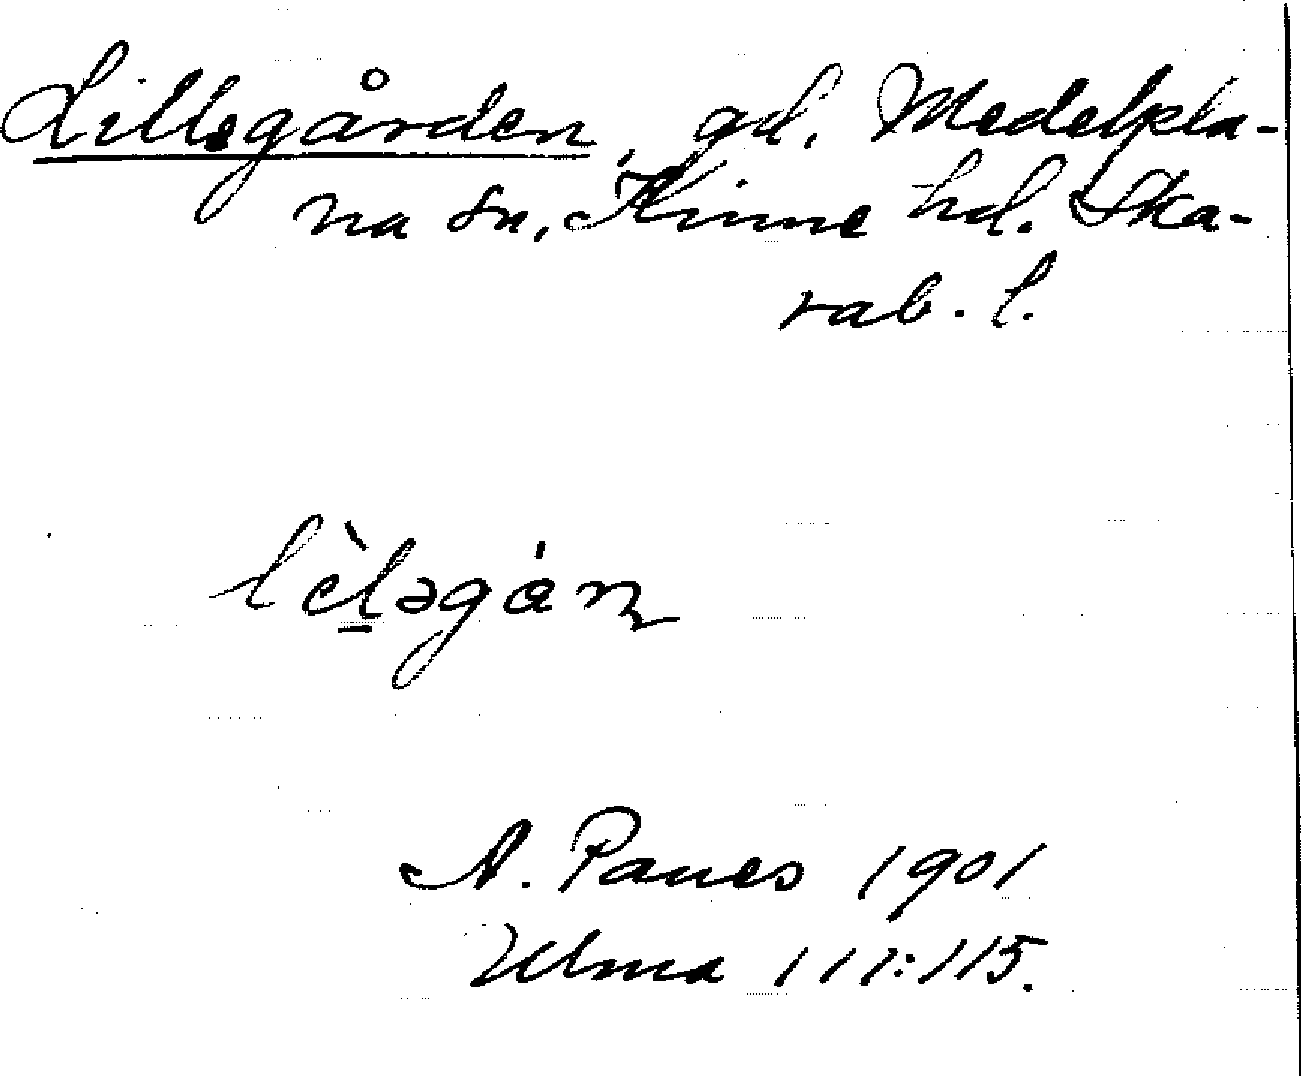 Lillegården, gd. Medelpla-
na sn, Kinne hd. Ska-
rab. l.
lèləgȧn
A. Paues 1901
Ulma 111:115.